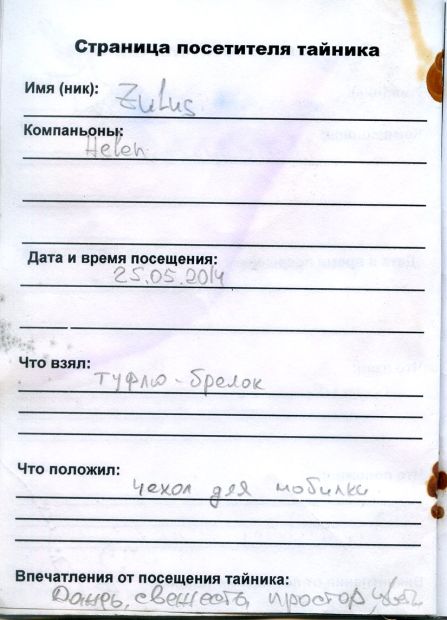 Страница посетителя тайника
Имя (ник): Zulus
Компаньоны:
Helen
Дата и время посещения:
25.05.2014
Что взял:
туфлю-брелок
Что положил:
чехол для мобилки
Впечатления от посещения тайника:
Дождь, свежесть, простор